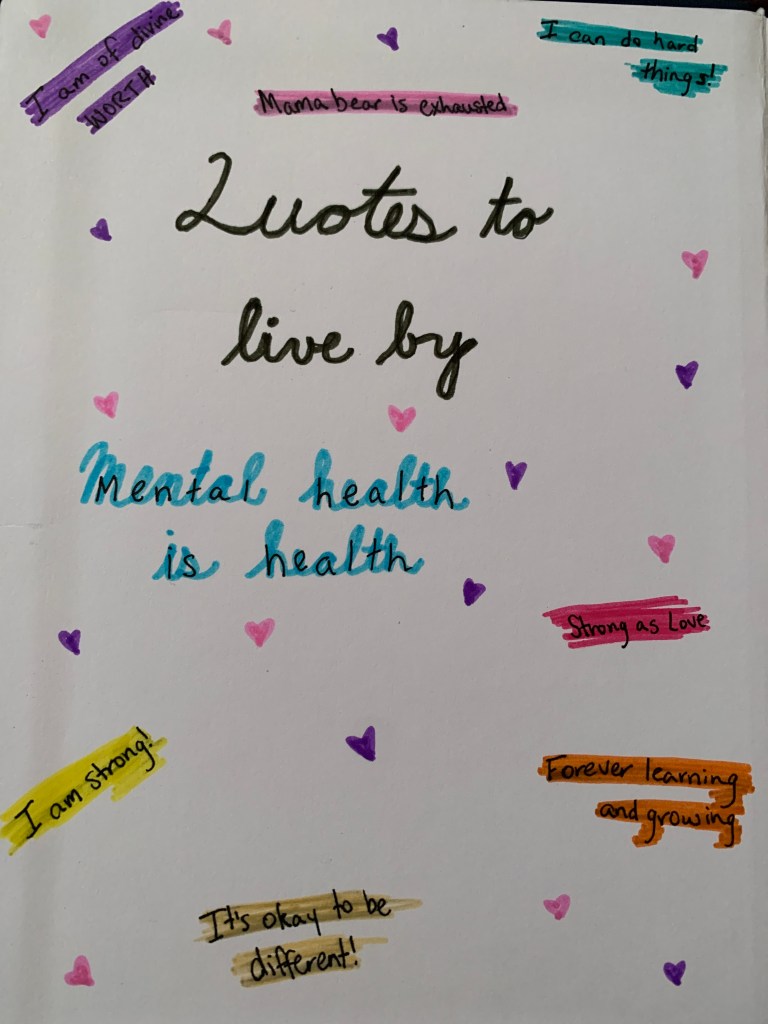 I am of divine
WORTH
I can do hard
things!
Mama bear is exhausted
Quotes to
live by
Mental health
is health
Strong as Love
I am strong!
Forever learning
and growing
It's okay to be
different!